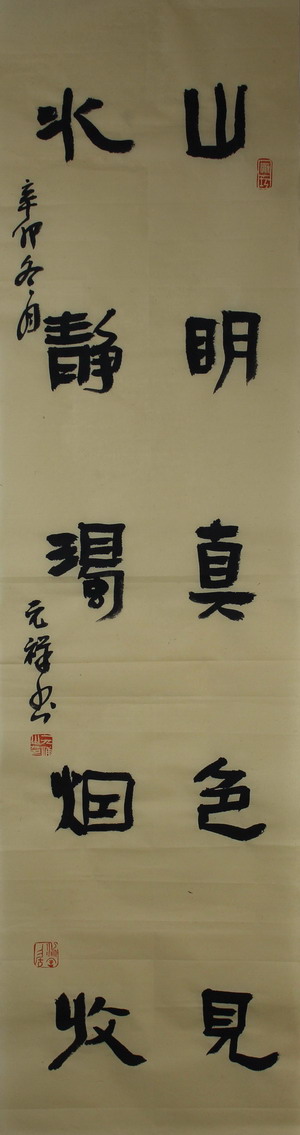 山明真色見
水静濁烟收
辛卯冬月
元祥书